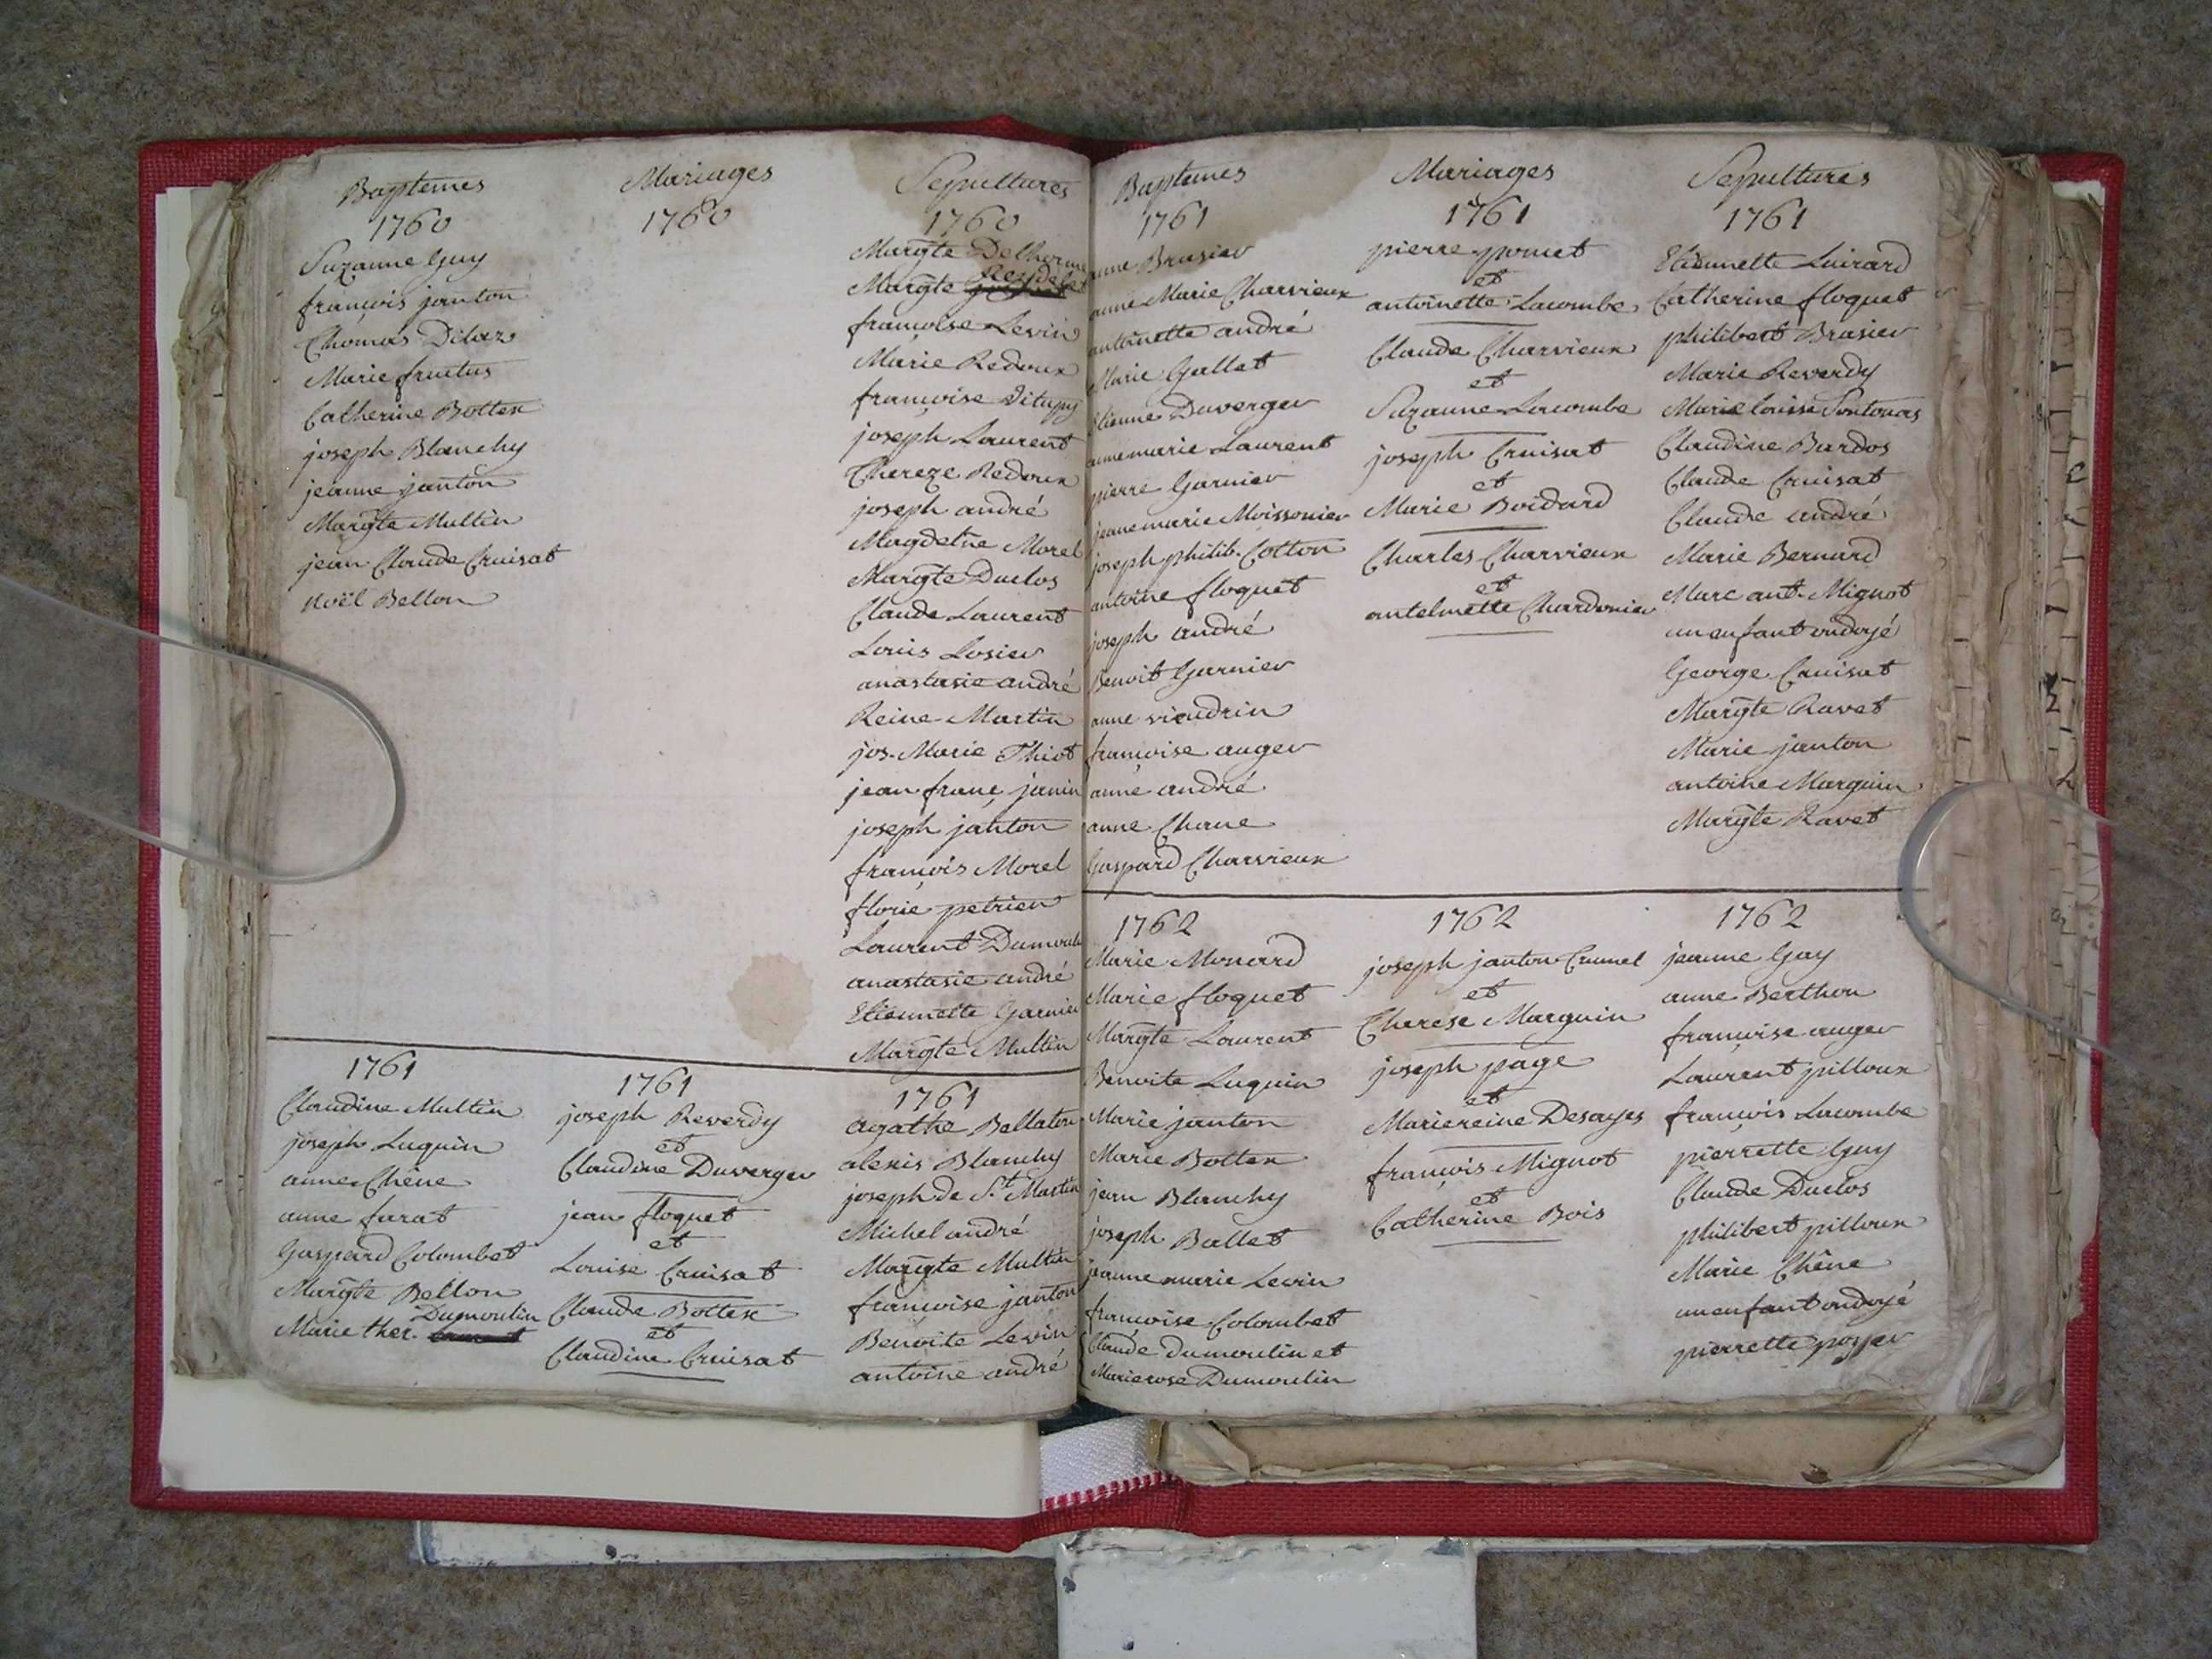 Baptemes
1760
Suzanne Guy
françois janton
Thomas Dilaz
Marie fructus
Catherine Bottex
joseph Blanchy
jeanne janton
Margte Multin
jean Claude Cruisat
Noël Bellon
1761
Claudine Multin
joseph Luquin
anne Chêne
anne furat
Gaspard Colombet
Margte Bellon
Dumoulin
Marie ther.
Mariages
1760
1761
joseph Reverdy
et
Claudine Duverger
jean floquet
et
Louise Cruisat
Claude Bottex
et
Claudine Cruisat
Sepultures
1760
Margte Delhorme
Margte
françoise Levin
Marie Redoux
françoise Ditupy
joseph Laurent
Thereze Redoux
joseph andré
Magdelne Morel
Margte Duclos
Claude Laurent
Louis Losier
anastasie andré
Reine Martin
jos. Marie Thiot
jean franç janin
joseph janton
françois Morel
florie petrien
Laurent Dumoulin
anastasie andré
Etiennette Garnier
Margte Multin
1761
agathe Bellaton
alexis Blanchy
joseph de St. Martin
Michel andré
Margte Multin
françoise janton
Benoite Levin
antoine andré
Baptemes
1761
anne Brasier
anne Marie Charvieux
antoinette andré
Marie Gallet
Etienne Duverger
anne marie Laurent
pierre Garnier
jeane marie Moissonier
joseph philib. Cotton
antoine floquet
joseph andré
Benoit Garnier
anne viendrin
françoise auger
anne andré
anne Chane
Gaspard Charvieux
1762
Marie Monard
Marie floquet
Margte Laurent
Benoite Luquin
Marie janton
Marie Bottex
jean Blanchy
joseph Ballet
jeanne marie Levin
françoise Colombet
Claude dumoulin et
Marie rose Dumoulin
Mariages
1761
pierre pomet
et
antoinette Lacombe
Claude Charvieux
et
Suzanne Lacombe
joseph Cruisat
et
Marie Boidard
Charles Charvieux
et
antelmette Chardonier
1762
joseph janton Crumel
et
Therese Marguin
joseph page
et
Marie reine Desayes
françois Mignot
et
Catherine Bois
Sepultures
1761
Etiennette Luirard
Catherine floquet
philibert Brasier
Marie Reverdy
Marie Louise
Claudine Bardos
Claude Cruisat
Claude andré
Marie Bernard
Marc ant. Mignot
un enfant ondoyé
George Cruisat
Margte Ravet
Marie janton
antoine Marguin
Margte Ravet
1762
jeanne Gay
anne Berthon
françoise auger
Laurent pilloux
françois Lacombe
pierrette Guy
Claude Duclos
philibert pilloux
Marie Chêne
un enfant ondoyé
pierrette